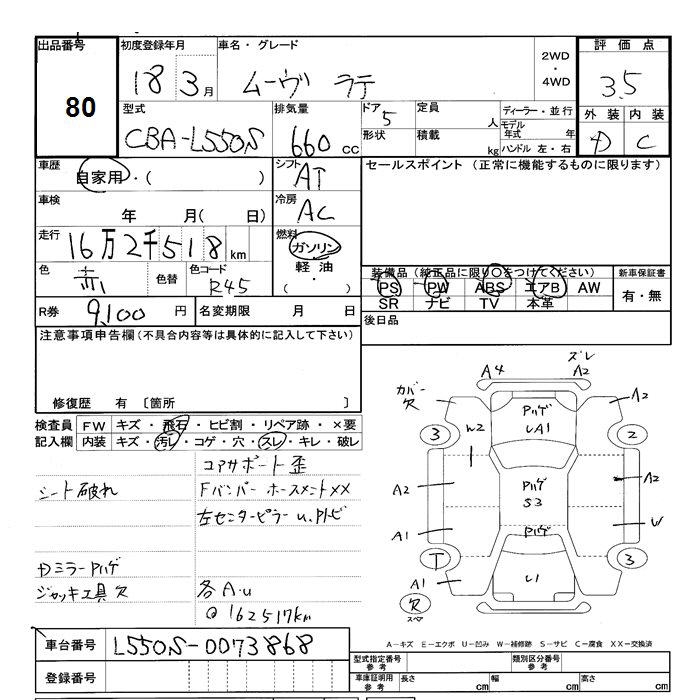 出品番号 初度登録年月 車名・グレード 2WD ・ 4WD 評価点
80 18 3月 ムーヴ ラテ 3.5
型式 排気量 ドア 5 定員 人 ディーラー・並行 外装 内装
モデル年式 年
CBA-L550S 660 cc 形状 積載 kg ハンドル 左・右 D C
車歴 自家用・( ) シフト AT セールスポイント (正常に機能するものに限ります)
車検 年 月( 日) 冷房 AC
走行 16万2千518km 燃料 ガソリン
軽油
・
( )
色 赤 色替 色コード R45
装備品 (純正品に限り○をつけてください) 新車保証書
PS PW ABS エアB AW 有・無
SR ナビ TV 本革
R券 9,100 円 名変期限 月 日 後日品
注意事項申告欄 (不具合内容等は具体的に記入して下さい)
修復歴 有 〔箇所 〕
検査員記入欄 FW キズ・飛石・ヒビ割・リペア跡・×要
内装 キズ・汚レ・コゲ・穴・スレ・キレ・破レ
コアサポート歪
シート破れ Fバンパー ホースメントXX
左センターピラー u.P
DミラーPハゲ
ジャッキ工具欠 各A.u
@162517km
ズレ
A4 A2
カバー欠 A2
Pハゲ
UA1
3 2
W2
A2 Pハゲ A2
S3
A1 W
Pハゲ
T 3
A1 U1
欠
スペア
A－キズ E－エクボ U－凹み W－補修跡 S－サビ C－腐食 XX－交換済
車台番号 L550S-0073868
型式指定番号 参考 類別区分番号 参考
登録番号 車庫証明用 参考 長さ cm 幅 cm 高さ cm